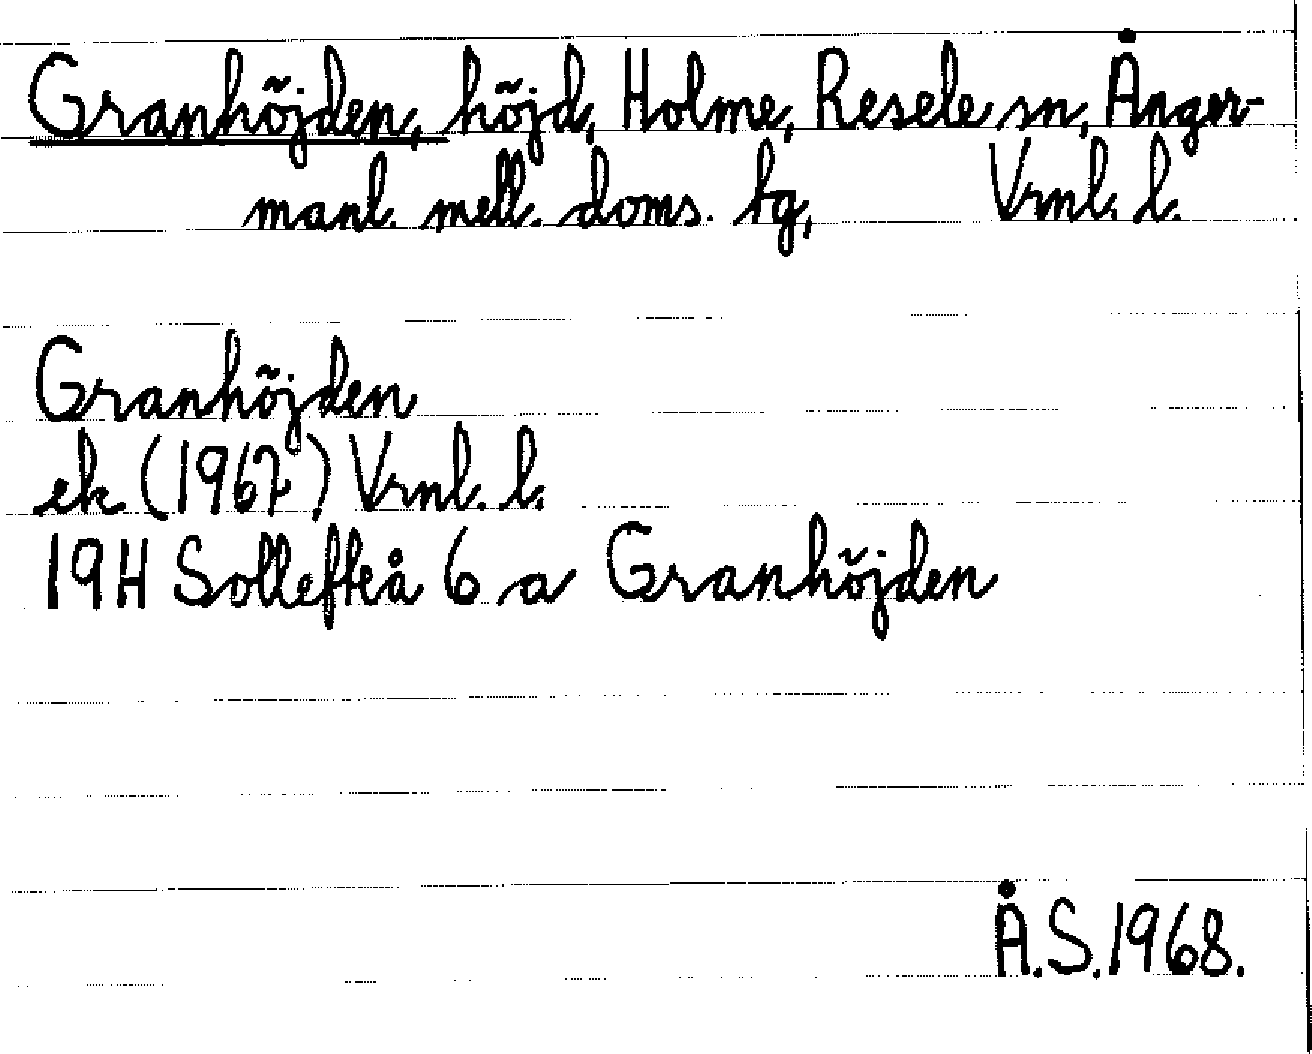 Granhöjden, höjd, Holme, Resele sn, Ånger-
manl. mell. doms. tg, Vrnl. l.
Granhöjden
ek (1967) Vrnl. l.
19H Sollefteå 6 a Granhöjden
Å.S.1968.